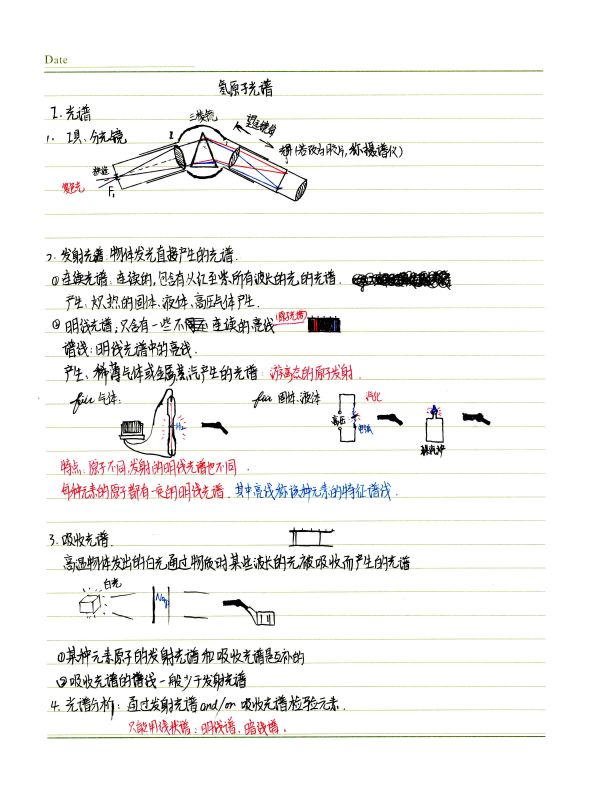 Date
氢原子光谱
I. 光谱
1. 工具、分光镜
三棱镜
望远镜筒
屏(若改为胶片,称摄谱仪)
狭缝
复色光
F₁
2. 发射光谱:物体发光直接产生的光谱.
①连续光谱:连续的,包含有从红至紫所有波长的光的光谱.
产生:炽热的固体、液体、高压气体产生.
②明线光谱:只含有一些不连续的亮线(原子光谱)
谱线:明线光谱中的亮线.
产生、稀薄气体或金属蒸汽产生的光谱:游离态的原子发射.
for 气体:
H₂
for 固体、液体
汽化
高压
电弧
煤气炉
特点、原子不同,发射的明线光谱也不同.
每种元素的原子都有一定的明线光谱. 其中亮线称该种元素的特征谱线.
3. 吸收光谱.
高温物体发出的白光通过物质时某些波长的光被吸收而产生的光谱
白光
①某种元素原子的发射光谱和吸收光谱是互补的
②吸收光谱的谱线一般少于发射光谱
4. 光谱分析:通过发射光谱and/or吸收光谱检验元素.
只能用线状谱:明线谱、暗线谱.